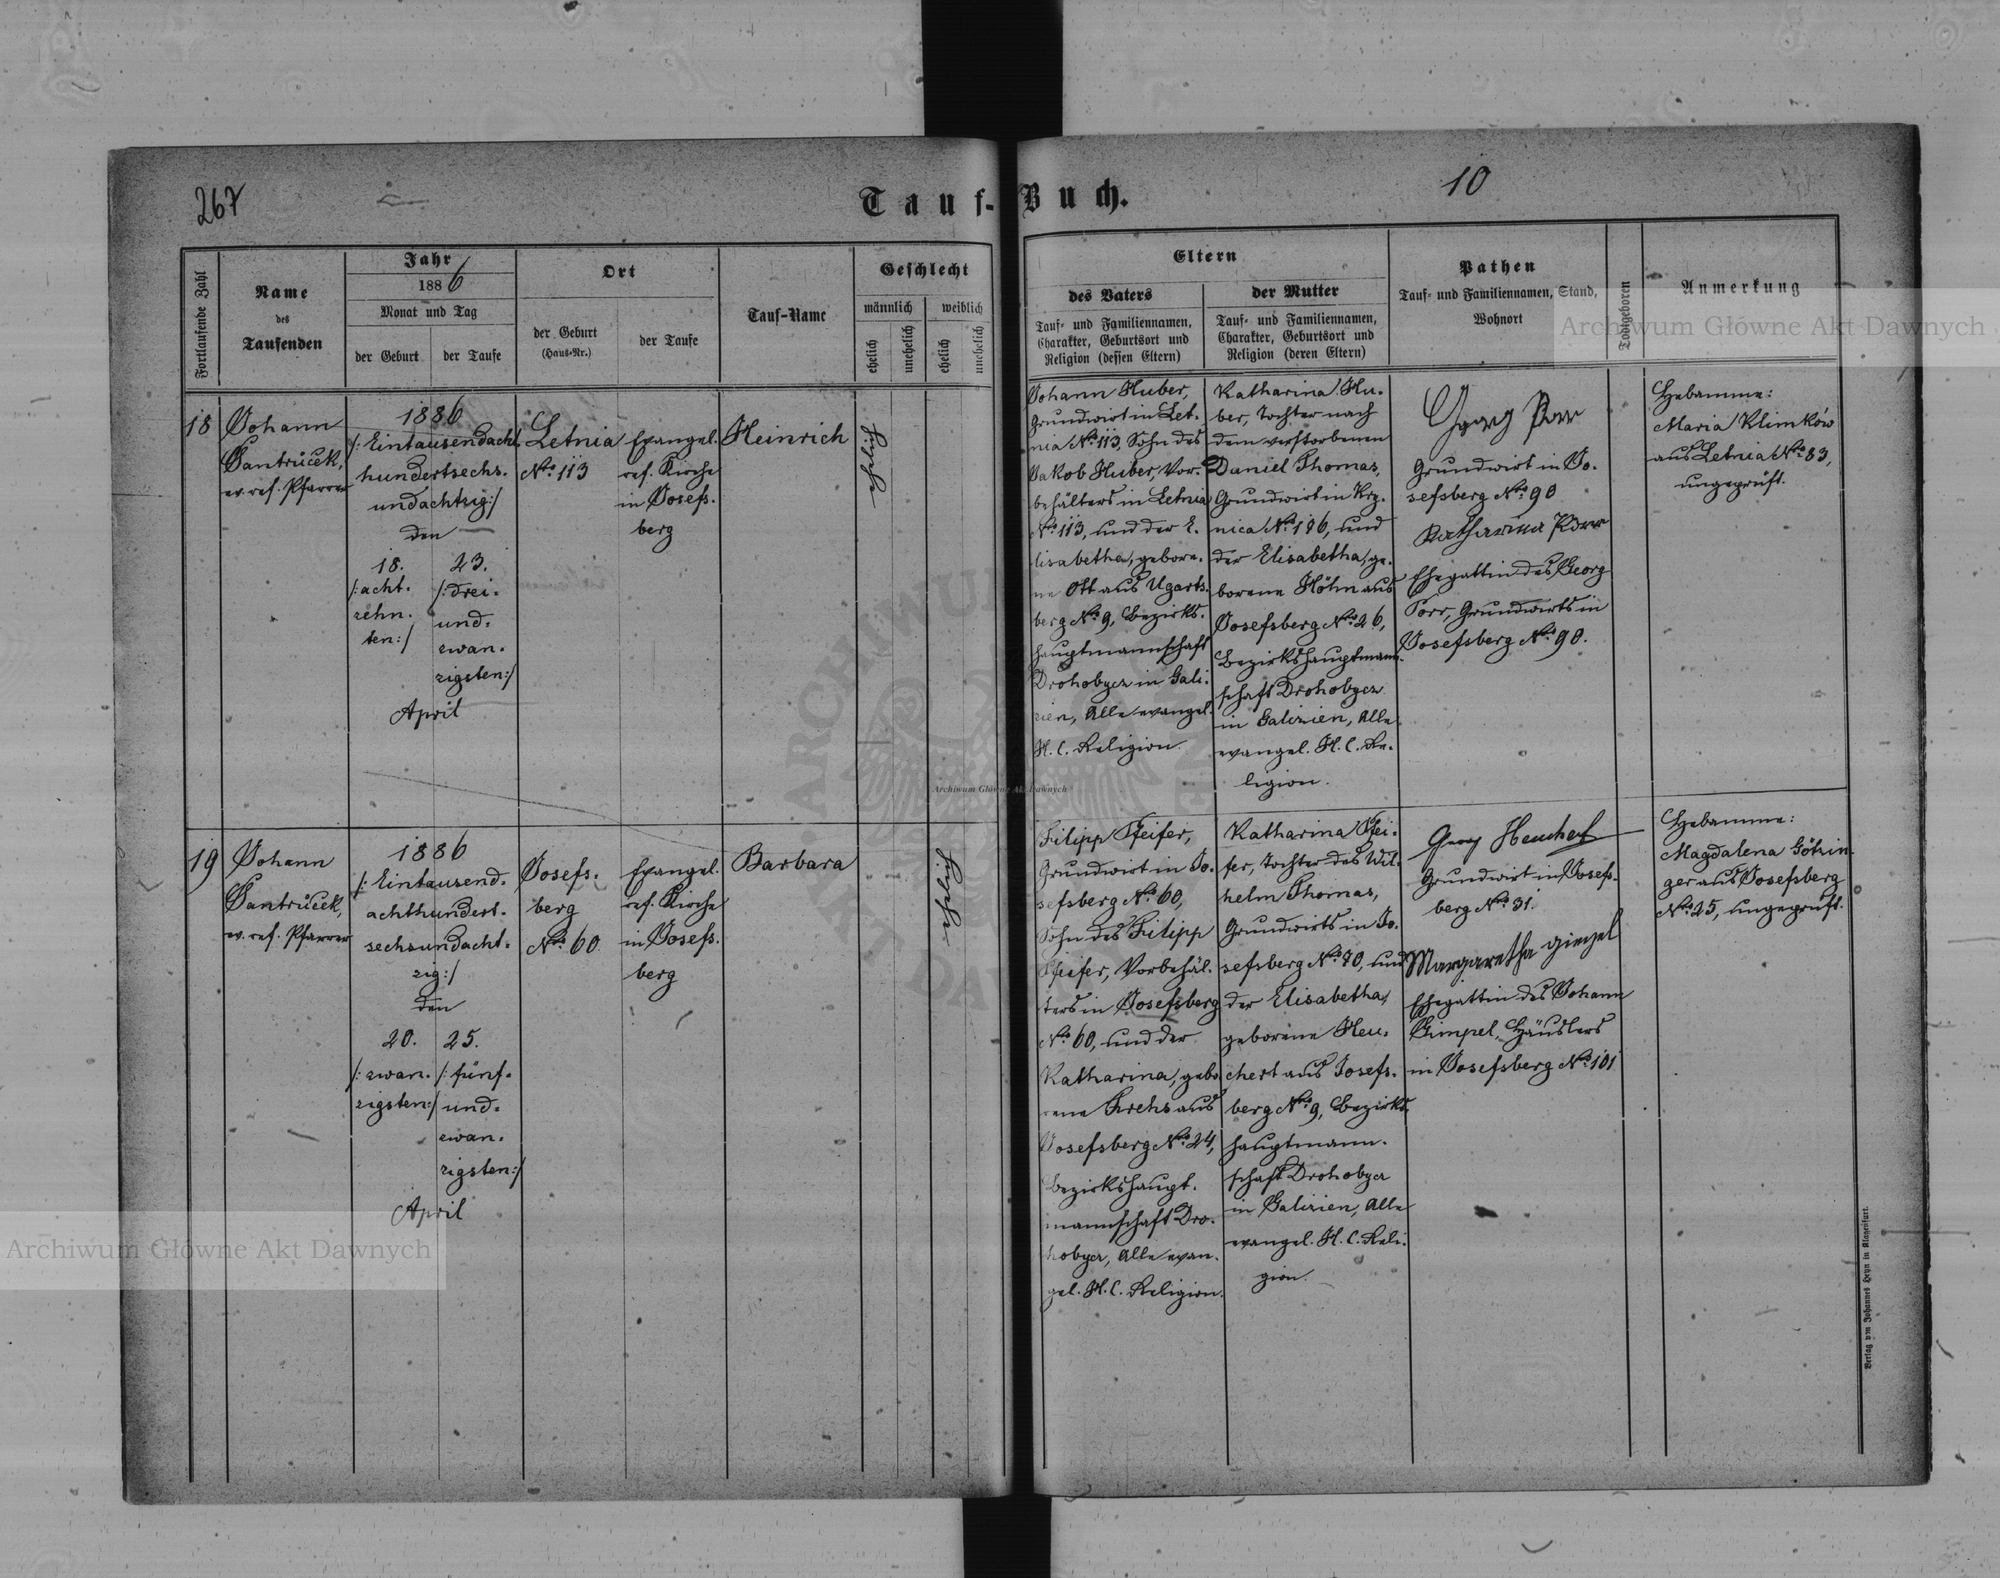 267
10
Tauf-Buch.
Fortlaufende Zahl
Name
des
Taufenden
Jahr
1886
Monat und Tag
der Geburt
der Taufe
Ort
der Geburt
(Haus-Nr.)
der Taufe
Tauf-Name
Geschlecht
männlich
weiblich
ehelich
unehelich
ehelich
unehelich
Eltern
des Vaters
Tauf- und Familiennamen,
Charakter, Geburtsort und
Religion (dessen Eltern)
der Mutter
Tauf- und Familiennamen,
Charakter, Geburtsort und
Religion (deren Eltern)
Pathen
Tauf- und Familiennamen, Stand,
Wohnort
Todtgeboren
Anmerkung
18
Johann
Jantrůček,
ev. ref. Pfarrer
1886
/: Eintausendacht
hundertsechs-
undachtzig :/
den
18.
/: acht-
zehn-
ten :/
23.
/: drei-
und-
zwan-
zigsten :/
April
Letnia
No. 113
Evangel.
ref. Kirche
in Josefs-
berg
Heinrich
ehelich
Johann Huber,
Grundwirt in Let-
nia No. 113, Sohn des
Jakob Huber, Vor-
behälters in Letnia
No. 113, und der E-
lisabetha, gebore-
ne Ott aus Ugarts-
berg No. 9, Bezirks-
hauptmannschaft
Drohobycz in Gali-
zien, Alle evangel.
H. C. Religion.
Katharina Hu-
ber, Tochter nach
dem verstorbenen
Daniel Thomas,
Grundwirt in Kry-
nica No. 186, und
der Elisabetha, ge-
borene Höhn aus
Josefsberg No. 26,
Bezirkshauptmann-
schaft Drohobycz
in Galizien, Alle
evangel. H. C. Re-
ligion.
Georg Porr
Grundwirt in Jo-
sefsberg No. 90
Katharina Porr
Ehegattin des Georg
Porr, Grundwirts in
Josefsberg No. 90.
Hebamme:
Maria Klimków
aus Letnia No. 83,
ungeprüft.
19
Johann
Jantrůček,
ev. ref. Pfarrer
1886
/: Eintausend-
achthundert-
sechsundacht-
zig :/
den
20.
/: zwan-
zigsten :/
25.
/: fünf-
und-
zwan-
zigsten :/
April
Josefs-
berg
No. 60
Evangel.
ref. Kirche
in Josefs-
berg
Barbara
ehelich
Filipp Pfeifer,
Grundwirt in Jo-
sefsberg No. 60,
Sohn des Filipp
Pfeifer, Vorbehäl-
ters in Josefsberg
No. 60, und der
Katharina, gebo-
rene Krehs aus
Josefsberg No. 24,
Bezirkshaupt-
mannschaft Dro-
hobycz, Alle evan-
gel. H. C. Religion.
Katharina Pfei-
fer, Tochter des Wil-
helm Thomas,
Grundwirts in Jo-
sefsberg No. 70, und
der Elisabetha,
geborene Heu-
chert aus Josefs-
berg No. 9, Bezirks-
hauptmann-
schaft Drohobycz
in Galizien, Alle
evangel. H. C. Reli-
gion.
Georg Heuchert
Grundwirt in Josefs-
berg No. 31.
Margaretha Gimpel
Ehegattin des Johann
Gimpel, Häuslers
in Josefsberg No. 101
Hebamme:
Magdalena Götzin-
ger aus Josefsberg
No. 25, ungeprüft.
Verlag von Johannes Heyn in Klagenfurt.
Archiwum Główne Akt Dawnych
Archiwum Główne Akt Dawnych
Archiwum Główne Akt Dawnych